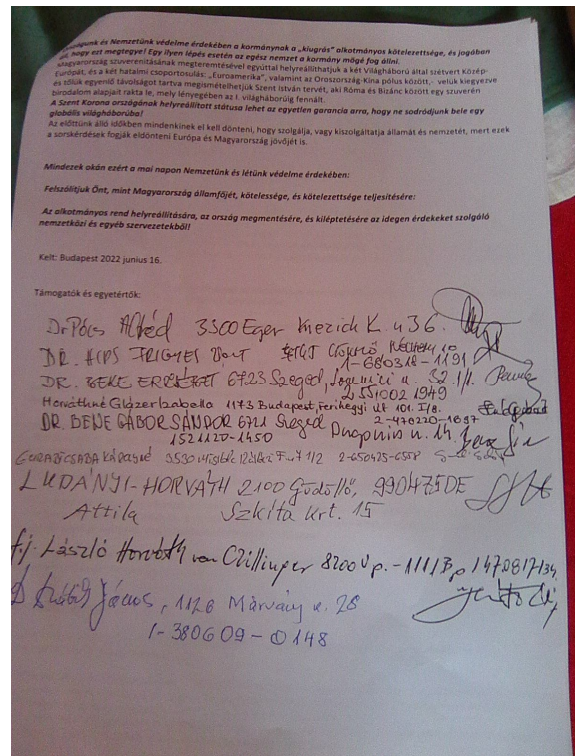 és Nemzetünk védelme érdekében a kormánynak a „kiugrás" alkotmányos kötelezettsége, és jogában
hogy ezt megtegye! Egy ilyen lépés esetén az egész nemzet a kormány mögé fog állni.
Magyarország szuverenitásának megteremtésével egyúttal helyreállíthatjuk a két Világháború által szétvert Közép-
Európát, és a két hatalmi csoportosulás: „Euroamerika", valamint az Oroszország-Kína pólus között,- velük kiegyezve
és tőlük egyenlő távolságot tartva megismételhetjük Szent István tervét, aki Róma és Bizánc között egy szuverén
birodalom alapjait rakta le, mely lényegében az I. világháborúig fennált.
A Szent Korona országának helyreállított státusa lehet az egyetlen garancia arra, hogy ne sodródjunk bele egy
globális világháborúba!
Az előttünk álló időkben mindenkinek el kell dönteni, hogy szolgálja, vagy kiszolgáltatja államát és nemzetét, mert ezek
a sorskérdések fogják eldönteni Európa és Magyarország jövőjét is.
Mindezek okán ezért a mai napon Nemzetünk és létünk védelme érdekében:
Felszólítjuk Önt, mint Magyarország államfőjét, kötelessége, és kötelezettsége teljesítésére:
Az alkotmányos rend helyreállítására, az ország megmentésére, és kiléptetésére az idegen érdekeket szolgáló
nemzetközi és egyéb szervezetekből!
Kelt: Budapest 2022 junius 16.
Támogatók és egyetértők:
Dr Pócs Alfréd 3300 Eger K. u 36.
DR. FRIGYES
1-680318-1191
DR. BEKE 6723 Szeged, u. 32.
2 551002 1949
Horváthné Glázer Izabella 1173 Budapest, Ferihegyi út 101. I/8.
2-470220-1697
DR. BENE GÁBOR SÁNDOR 6721 Szeged u. 14.
1521120-1450
3530 Miskolc 1/2 2-650425-
LUDÁNYI-HORVÁTH 2100 Gödöllő, 990475DE
Attila Szkíta krt. 15
f.j. László Horváth von Czillinger 8200 Vp. - 1111 Bp
János, 1126 Márvány u. 28
1-380609-0148